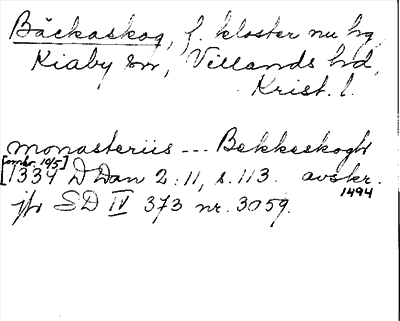 Bäckaskog, f. kloster nu hg
Kiaby sn, Villands hd,
Krist. l.
monasteriis --- Bekkeskogh
[omkr. 10/5]
[1334 DDan 2:11, s. 113. avskr.
1494
jfr SD IV 373 nr. 3059.